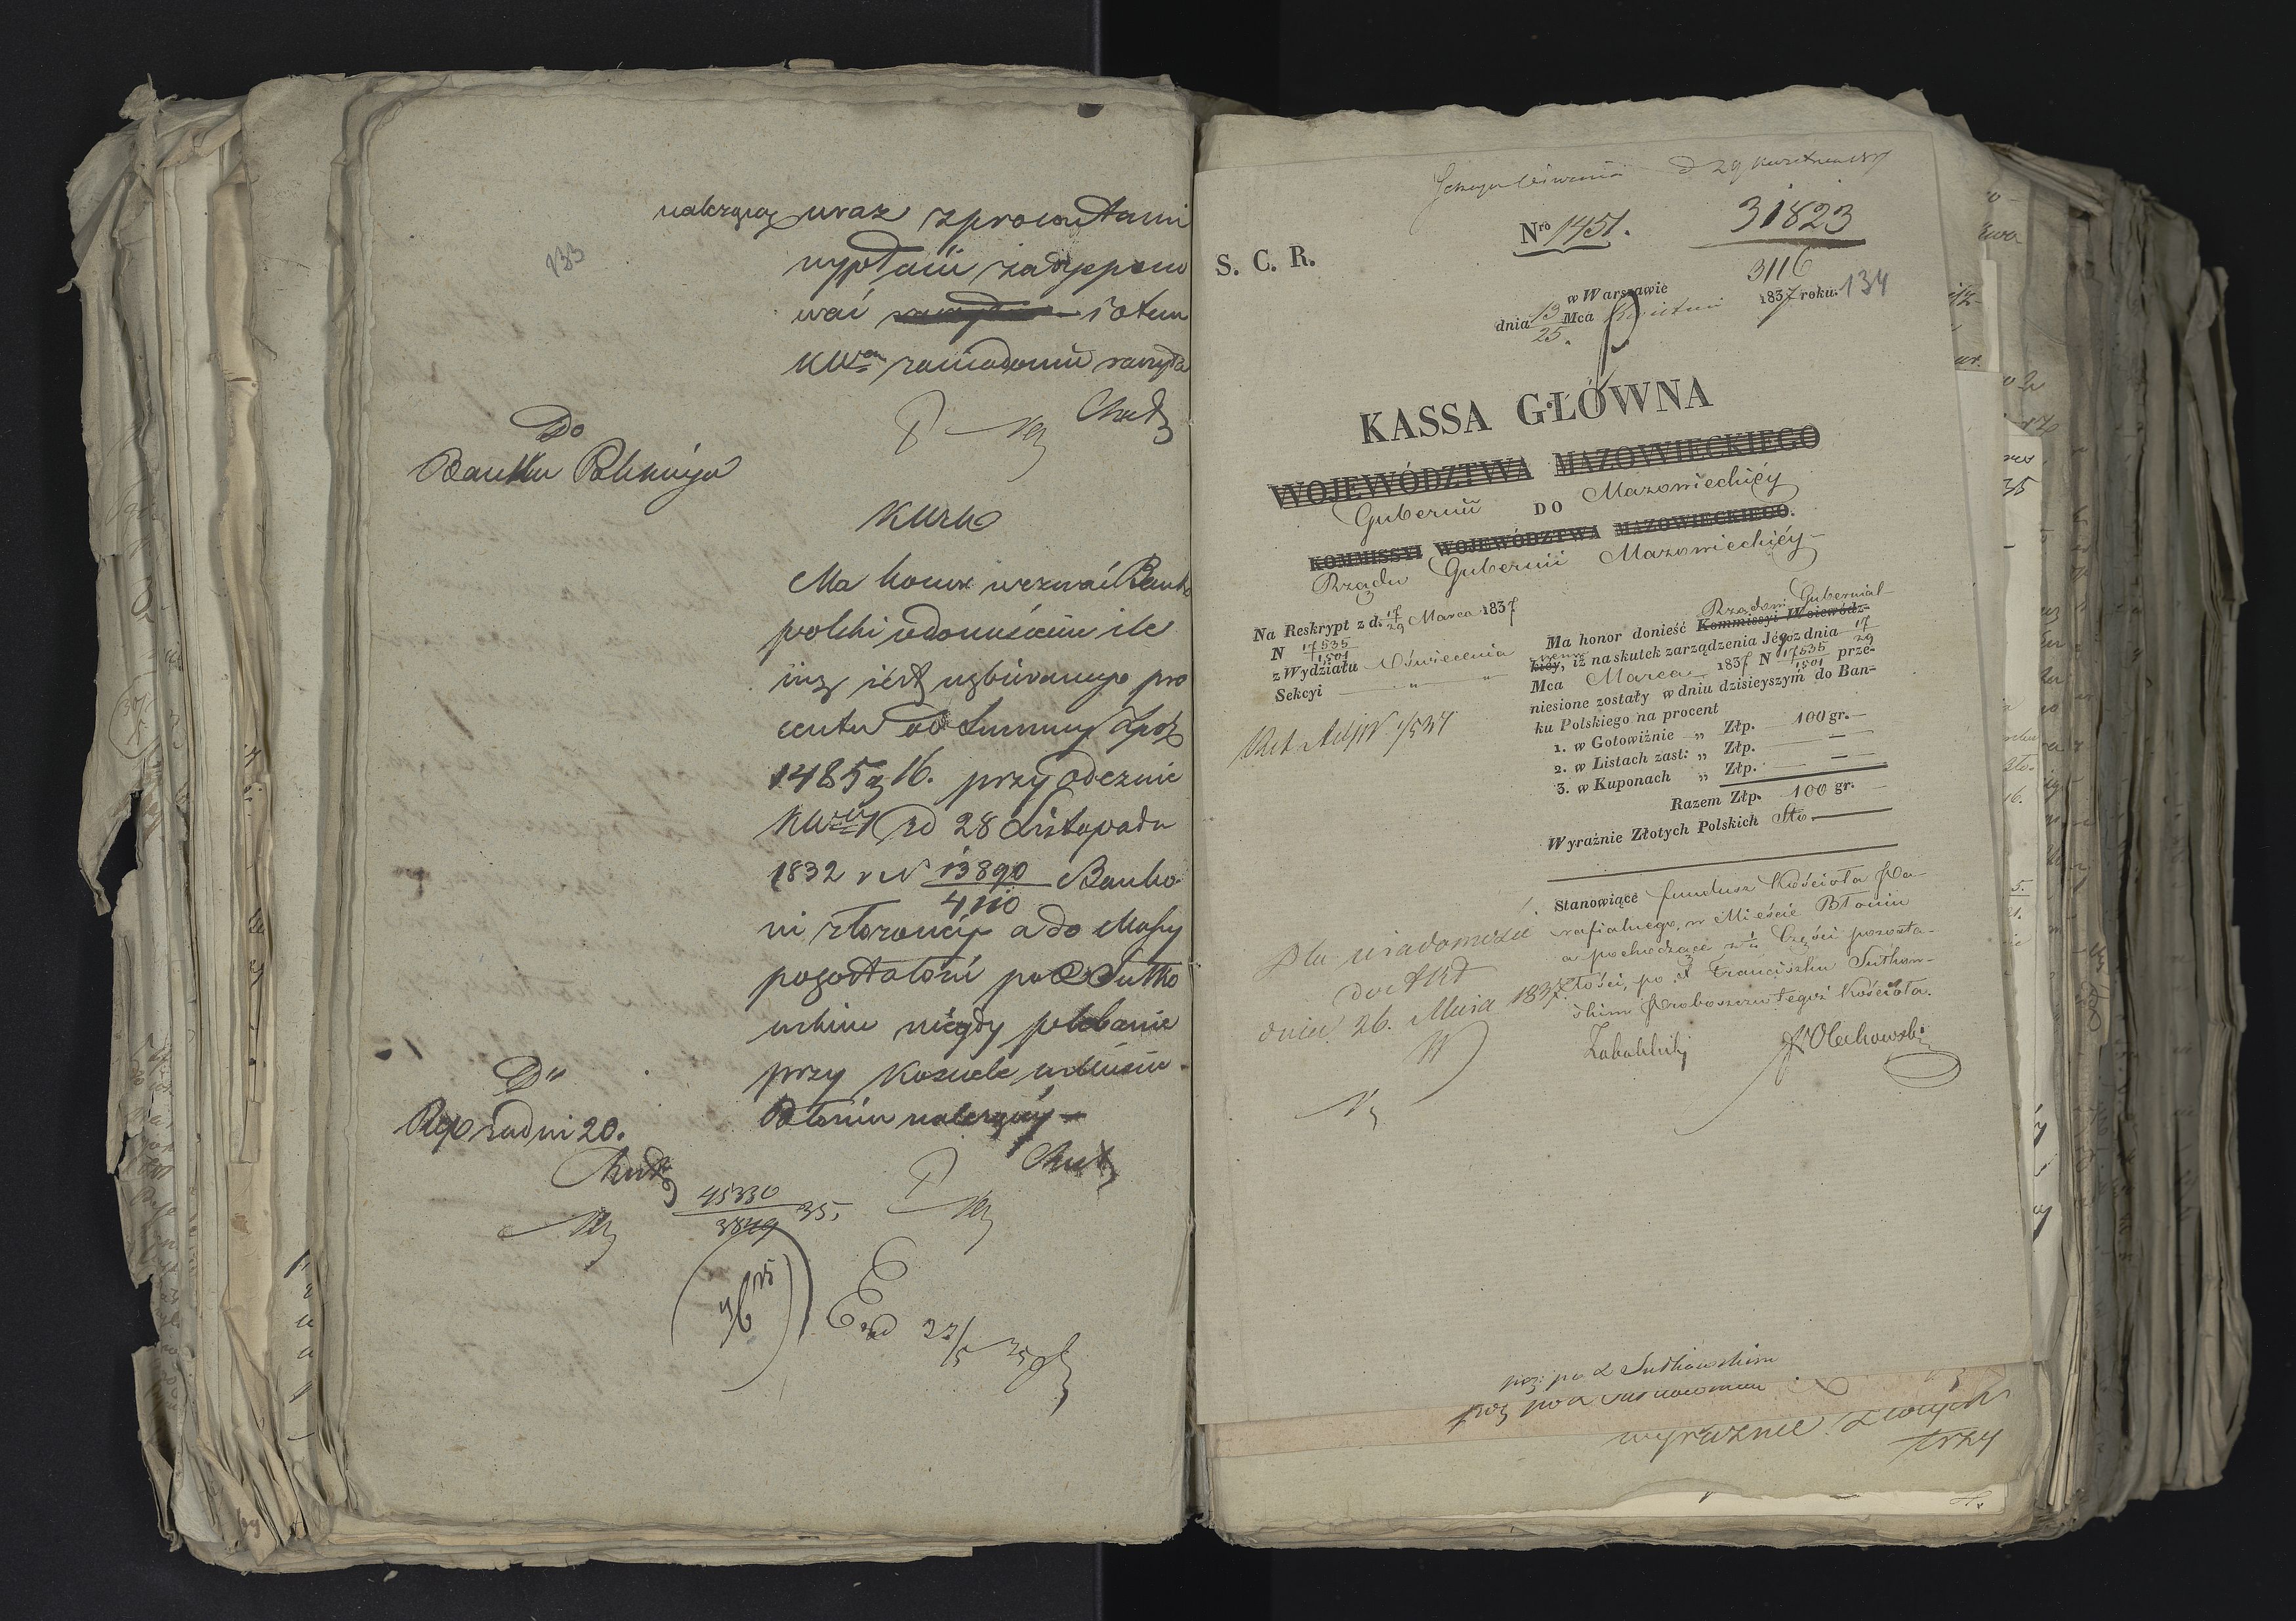 133
należącą wraz z procentami
wypłacić zadyspono
wać i o tem
KWską zawiadomić
Do
Banku Polskiego
KWska
Ma honor wezwać Bank
polski o doniesienie ile
iuż iest uzbieranego pro
centu od Summy Złp
1485 g 16. przy odezwie
KWskiej z d 28 Listopada
1832 r N 13890/4110 Banko
wi złożoney a do Massy
pozostałości po X Sutko
wskim niegdy plebanie
przy Kościele w Mieście
Błoniu należącey
Do
Rep rad ni 20.
45330
3849 35.
S. C. R.
Nro 1451.
31823
3116
134
w Warszawie
dnia 13/25. Mca Kwietnia 1837 roku.
KASSA GŁÓWNA
WOJEWÓDZTWA MAZOWIECKIEGO
Gubernii Mazowieckiéy
DO
KOMMISSYI WOJEWÓDZTWA MAZOWIECKIEGO.
Rządu Gubernii Mazowieckiéy
Na Reskrypt z d. 17/29 Marca 1837
N 17535/1501
z Wydziału Oświecenia
Sekcyi — „ „
Rządowi Gubernial-
Ma honor donieść Kommissyi Woiewódz-
nemu
kiéy, iż na skutek zarządzenia Jégo z dnia 17/29
Mca Marca 1837 N 17535/1501 prze-
niesione zostały w dniu dzisieyszym do Ban-
ku Polskiego na procent
1. w Gotowiźnie „ Złp. 100 gr. —
2. w Listach zast: „ Złp. — —
3. w Kuponach „ Złp. — —
Razem Złp. 100 gr. —
Wyraźnie Złotych Polskich Sto.
Stanowiące fundusz Kościoła Pa-
rafialnego, w Mieście Błoniu
a pochodzące z ⅓ Części pozosta-
łości, po X Franciszku Sutkow-
skim Proboszczu tegoż Kościoła.
Dla wiadomości
do Akt
dnia 26. Maia 1837.
Olechowski
poz: po X Sutkowskim
wyraźnie Złotych
trzy